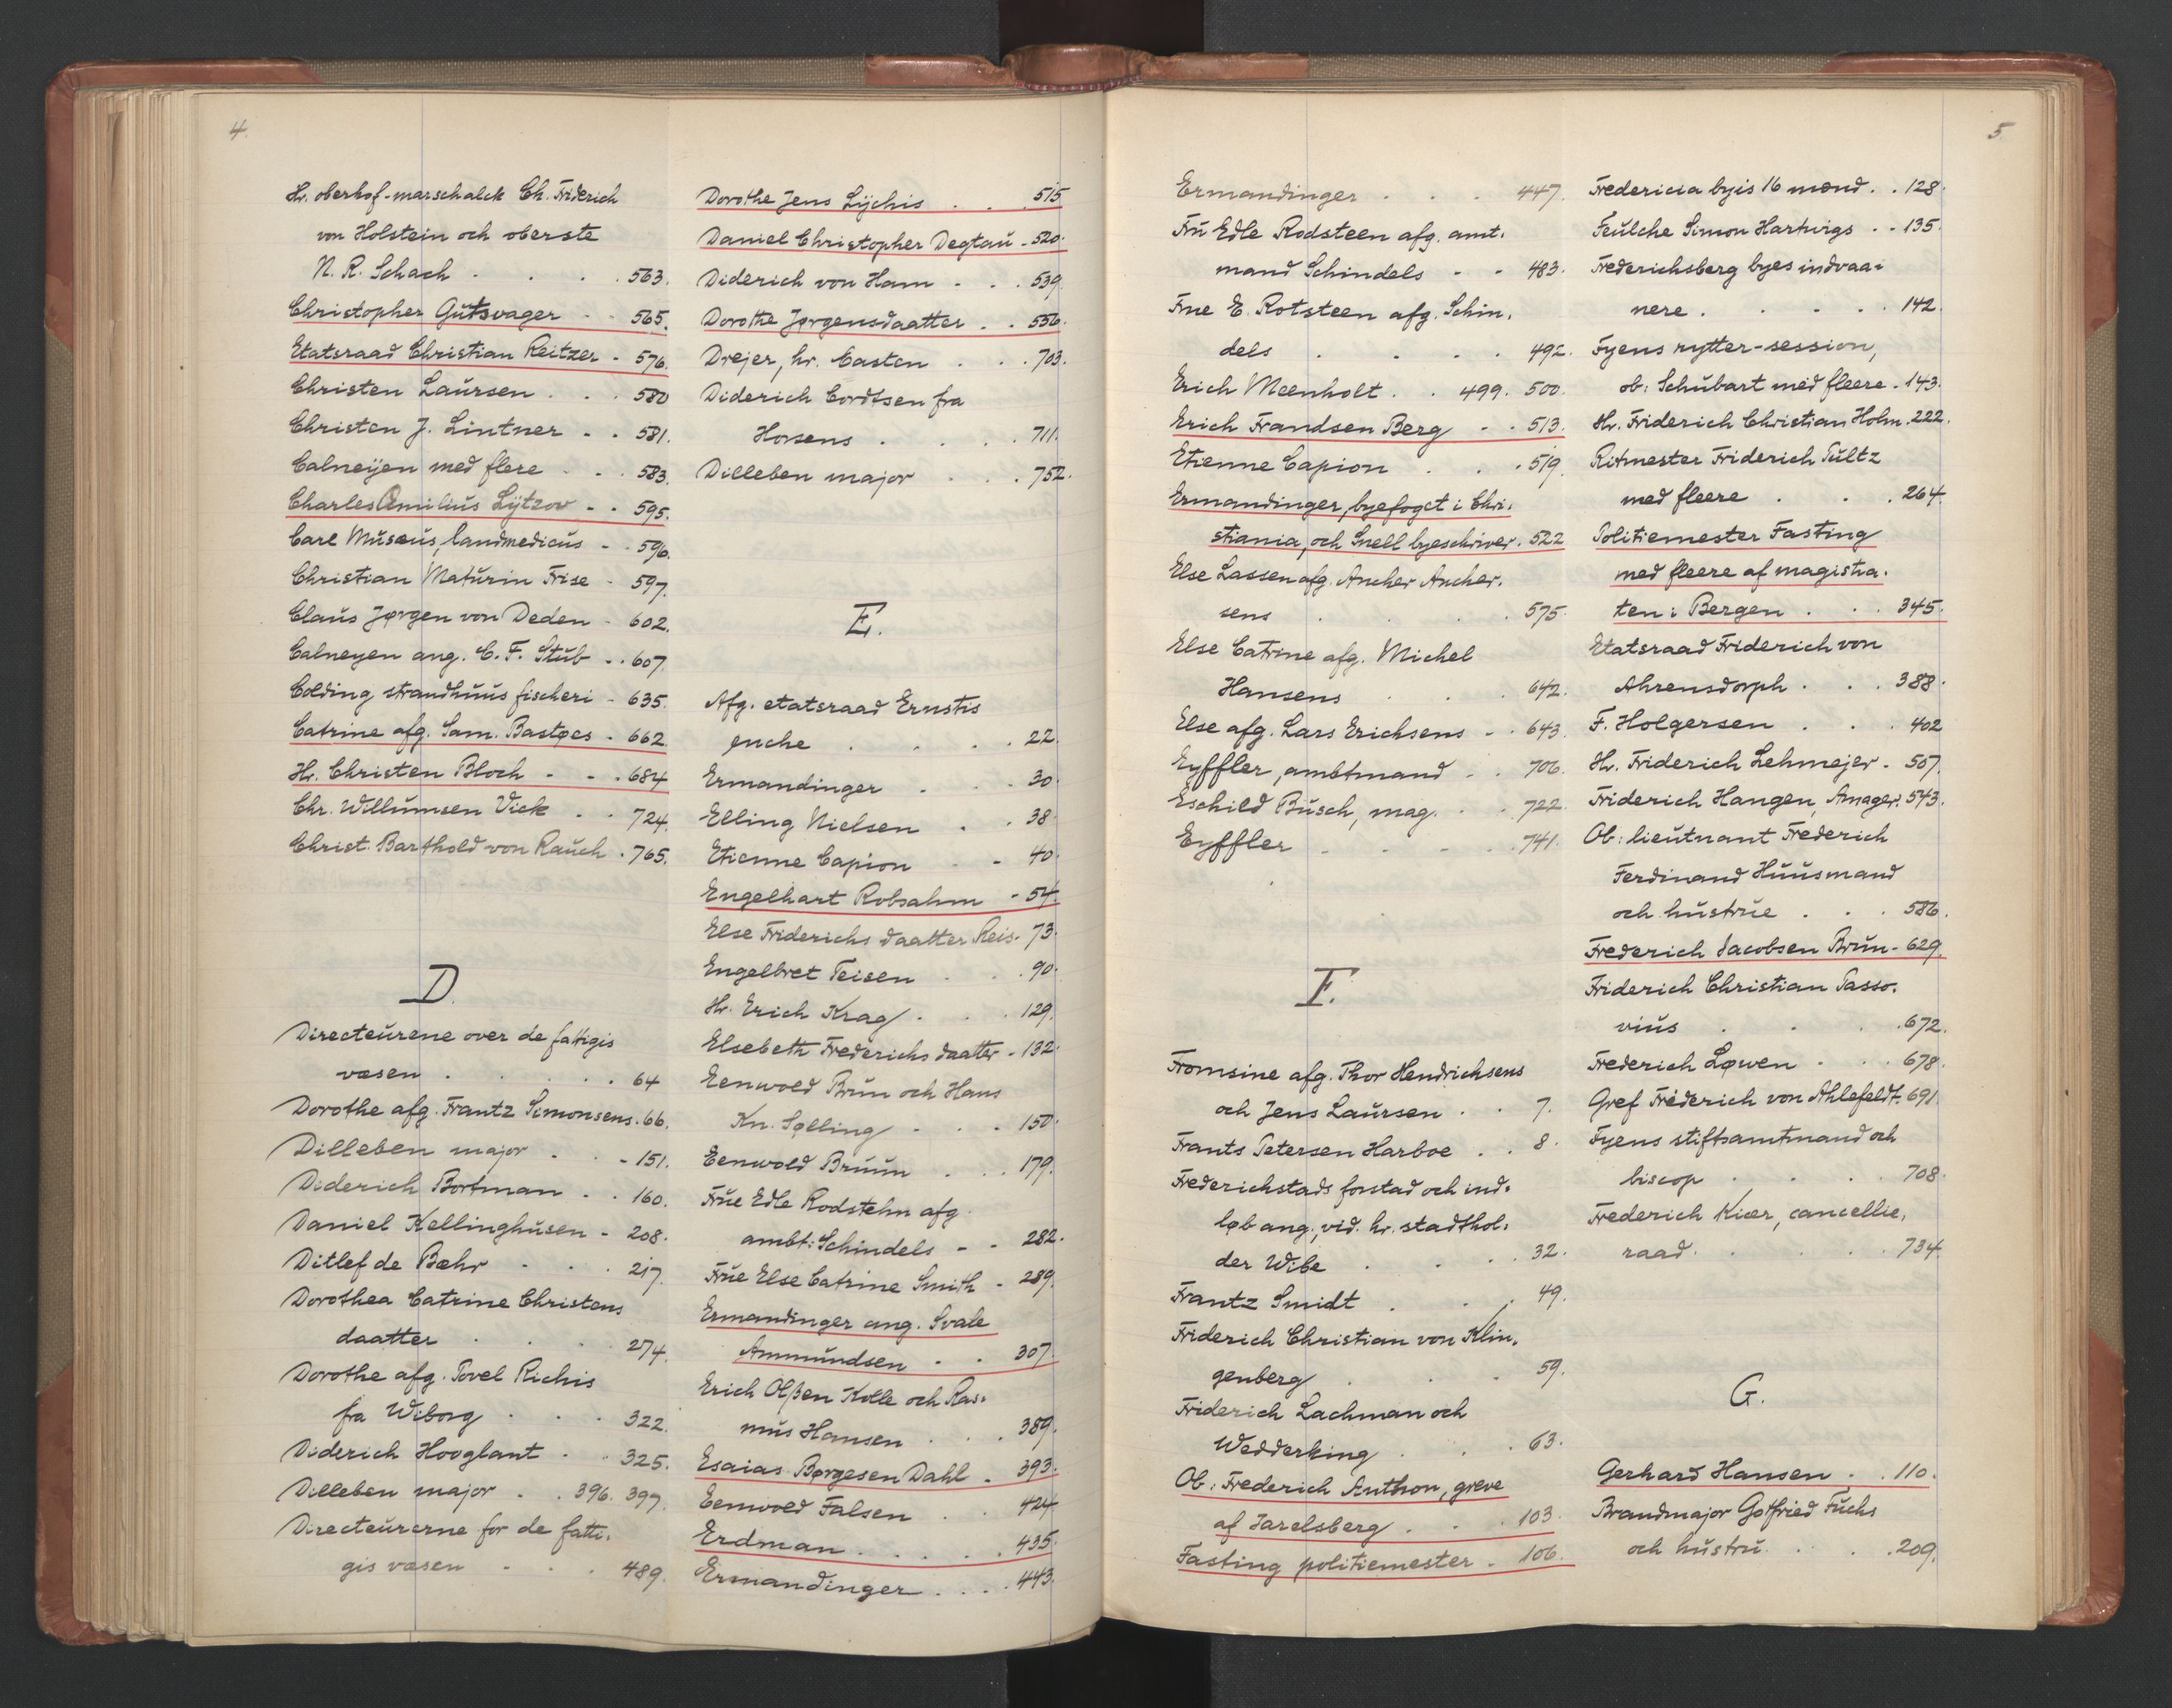 4.
Hr. oberhof-marschalck Ch. Friderich
von Holstein och oberste
N. R. Schach . . . . 563.
Christopher Gutsvager . . 565.
Etatsraad Christian Reitzer . 576.
Christen Laursen . . . 580
Christen J. Lintner . . 581.
Calneÿen med flere . . . 583.
Charles Emilius Lÿtzow . . 595.
Carl Musæus, landmedicus . . 596.
Christian Maturin Frise . 597.
Claus Jørgen von Deden . 602.
Calneyen ang. C. F. Stub . . 607.
Colding strandhuus fischeri . 635.
Catrine afg. Sam. Bastøes . 662.
Hr. Christen Bloch . . . 684
Chr. Willumsen Vick . . 724.
Christ. Barthold von Rauch . 765.
D.
Directeurene over de fattigis
væsen . . . . . 64
Dorothe afg. Frantz Simonsens . 66.
Dilleben major . . . 151.
Diderich Bortman . . 160.
Daniel Kellinghusen . 208.
Ditlef de Bæhr . . . 217.
Dorothea Catrine Christens
daatter . . . 274.
Dorothe afg. Povel Richis
fra Wiborg . . . 322.
Diderich Hooglant . . 325.
Dilleben major . . 396. 397.
Directeurerne for de fatti-
gis væsen . . . 489.
Dorothe Jens Lÿchis . . . 515
Daniel Christopher Degtau . 520.
Diderich von Ham . . . 539.
Dorothe Jørgensdaatter . . 556.
Drejer, hr. Casten . . . 703.
Diderich Cordtsen fra
Horsens . . . . 711.
Dilleben major . . . 752.
E.
Afg. etatsraad Ernstis
enche . . . . 22.
Ermandinger . . . 30.
Elling Nielsen . . 38.
Etienne Capion . . 40.
Engelhart Robsahm . 54.
Else Friderichs daatter Reis. 73.
Engelbret Teisen . . . 90.
Hr. Erich Krag . . . 129.
Elsebeth Frederichs daatter . 132.
Eenwold Brun och Hans
Kn. Sølling . . . 150.
Eenwold Bruun . . . 179.
Frue Edle Rodstehn afg.
ambt: Schindels . . 282.
Frue Else Catrine Smith . 289.
Ermandinger ang. Svale
Ammundsen . . 307.
Erich Olßen Kolle och Ras-
mus Hansen . . . 389.
Esaias Børgesen Dahl . 393.
Eenwold Falsen . . 424
Erdman . . . . . 435.
Ermandinger . . . . 443.
5
Ermandinger . . . 447.
Fru Edle Rodsteen afg. amt-
mand Schindels . . 483.
Frue E. Rotsteen afg. Schin-
dels . . . . 492.
Erich Meenholt . . 499. 500.
Erich Frandsen Berg . . 513.
Etienne Capion . . . 519.
Ermandinger, byefoget i Chri-
stiania, och Snell byeschriver . 522
Else Lassen afg. Ancher Ancher-
sens . . . . 575.
Else Catrine afg. Michel
Hansens . . . 642.
Else afg. Lars Erichsens . . 643.
Eyffler, ambtmand . . 706.
Eschild Busch, mag. . . 722.
Eyffler . . . . . 741.
F.
Fromsine afg. Thor Hendrichsens
och Jens Laursen . . 7.
Frants Petersen Harboe . . 8.
Frederichstads forstad och ind-
løb ang., vid. hr. stadthol-
der Wibe . . . . 32.
Frantz Smidt . . . 49.
Friderich Christian von Klin-
genberg . . . 59.
Friderich Lachman och
Wedderking . . . 63.
Ob: Frederich Anthon, greve
af Jarelsberg . . . 103.
Fasting politiemester . 106.
Fredericia byis 16 mænd . . 128.
Feulche Simon Hartvigs . . 135.
Frederichsberg byes indvaa-
nere . . . . . 142.
Fyens rytter-session,
ob: Schubart med fleere . 143.
Hr. Friderich Christian Holm . 222.
Ritmester Friderich Pultz
med fleere . . . 264.
Politiemester Fasting
med fleere af magistra-
ten i Bergen . . . 345.
Etatsraad Friderich von
Ahrensdorph . . . 388.
F. Holgersen . . . 402
Hr. Friderich Lehmejer . 507.
Friderich Hangen, Amager. 543.
Ob: lieutnant Frederich
Ferdinand Huusmand
och hustrue . . . 586.
Frederich Jacobsen Brun . 629.
Friderich Christian Passo-
vius . . . . 672.
Frederich Løwen . . . 678.
Gref Friderich von Ahlefeldt . 691.
Fyens stiftsamtmand och
biscop . . . . 708.
Frederich Kiær, cancellie-
raad . . . . . 734.
G.
Gerhard Hansen . . 110.
Brandmajor Gotfried Fuchs
och hustru . . . . 209.